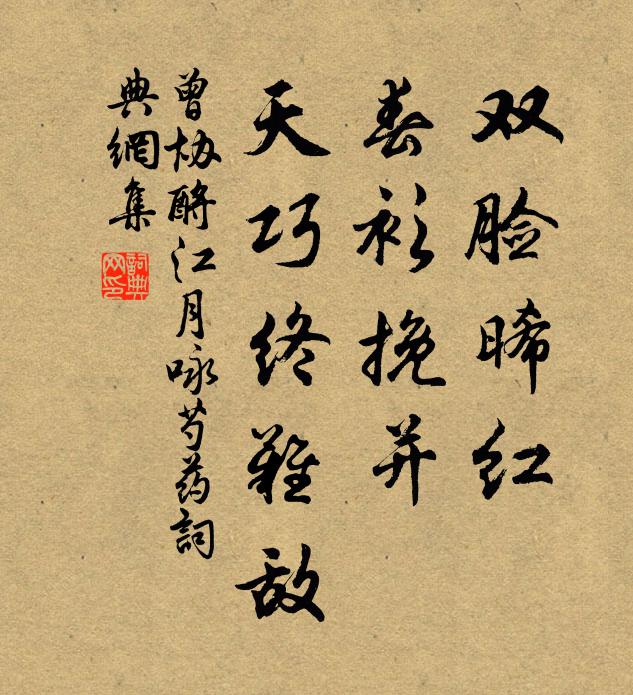 双脸晞红
春衫挽并
天巧终难敌
曾协酹江月咏芍药詞
典網集
詞典网印